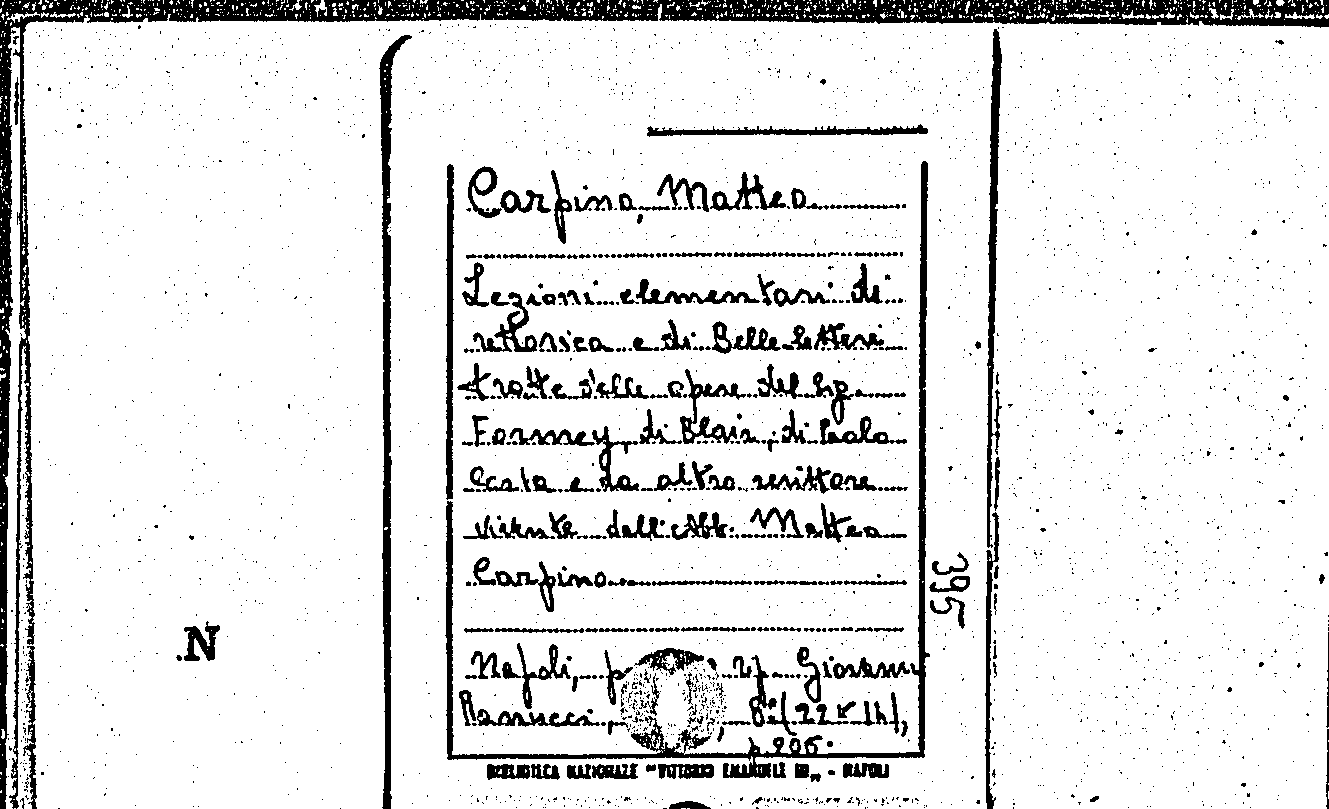 Carpino, Matteo.
Lezioni elementari di
rettorica e di Belle lettere
tratte dalle opere del Sig.
Formey, di Blair, di Paolo
Costa e da altro scrittore
vivente dall'Abb. Matteo
Carpino.
395
.N
Napoli, tip. Giovanni
Ranucci, 8º (22 x 14),
p. 206.
BIBLIOTECA NAZIONALE "VITTORIO EMANUELE III„ - NAPOLI